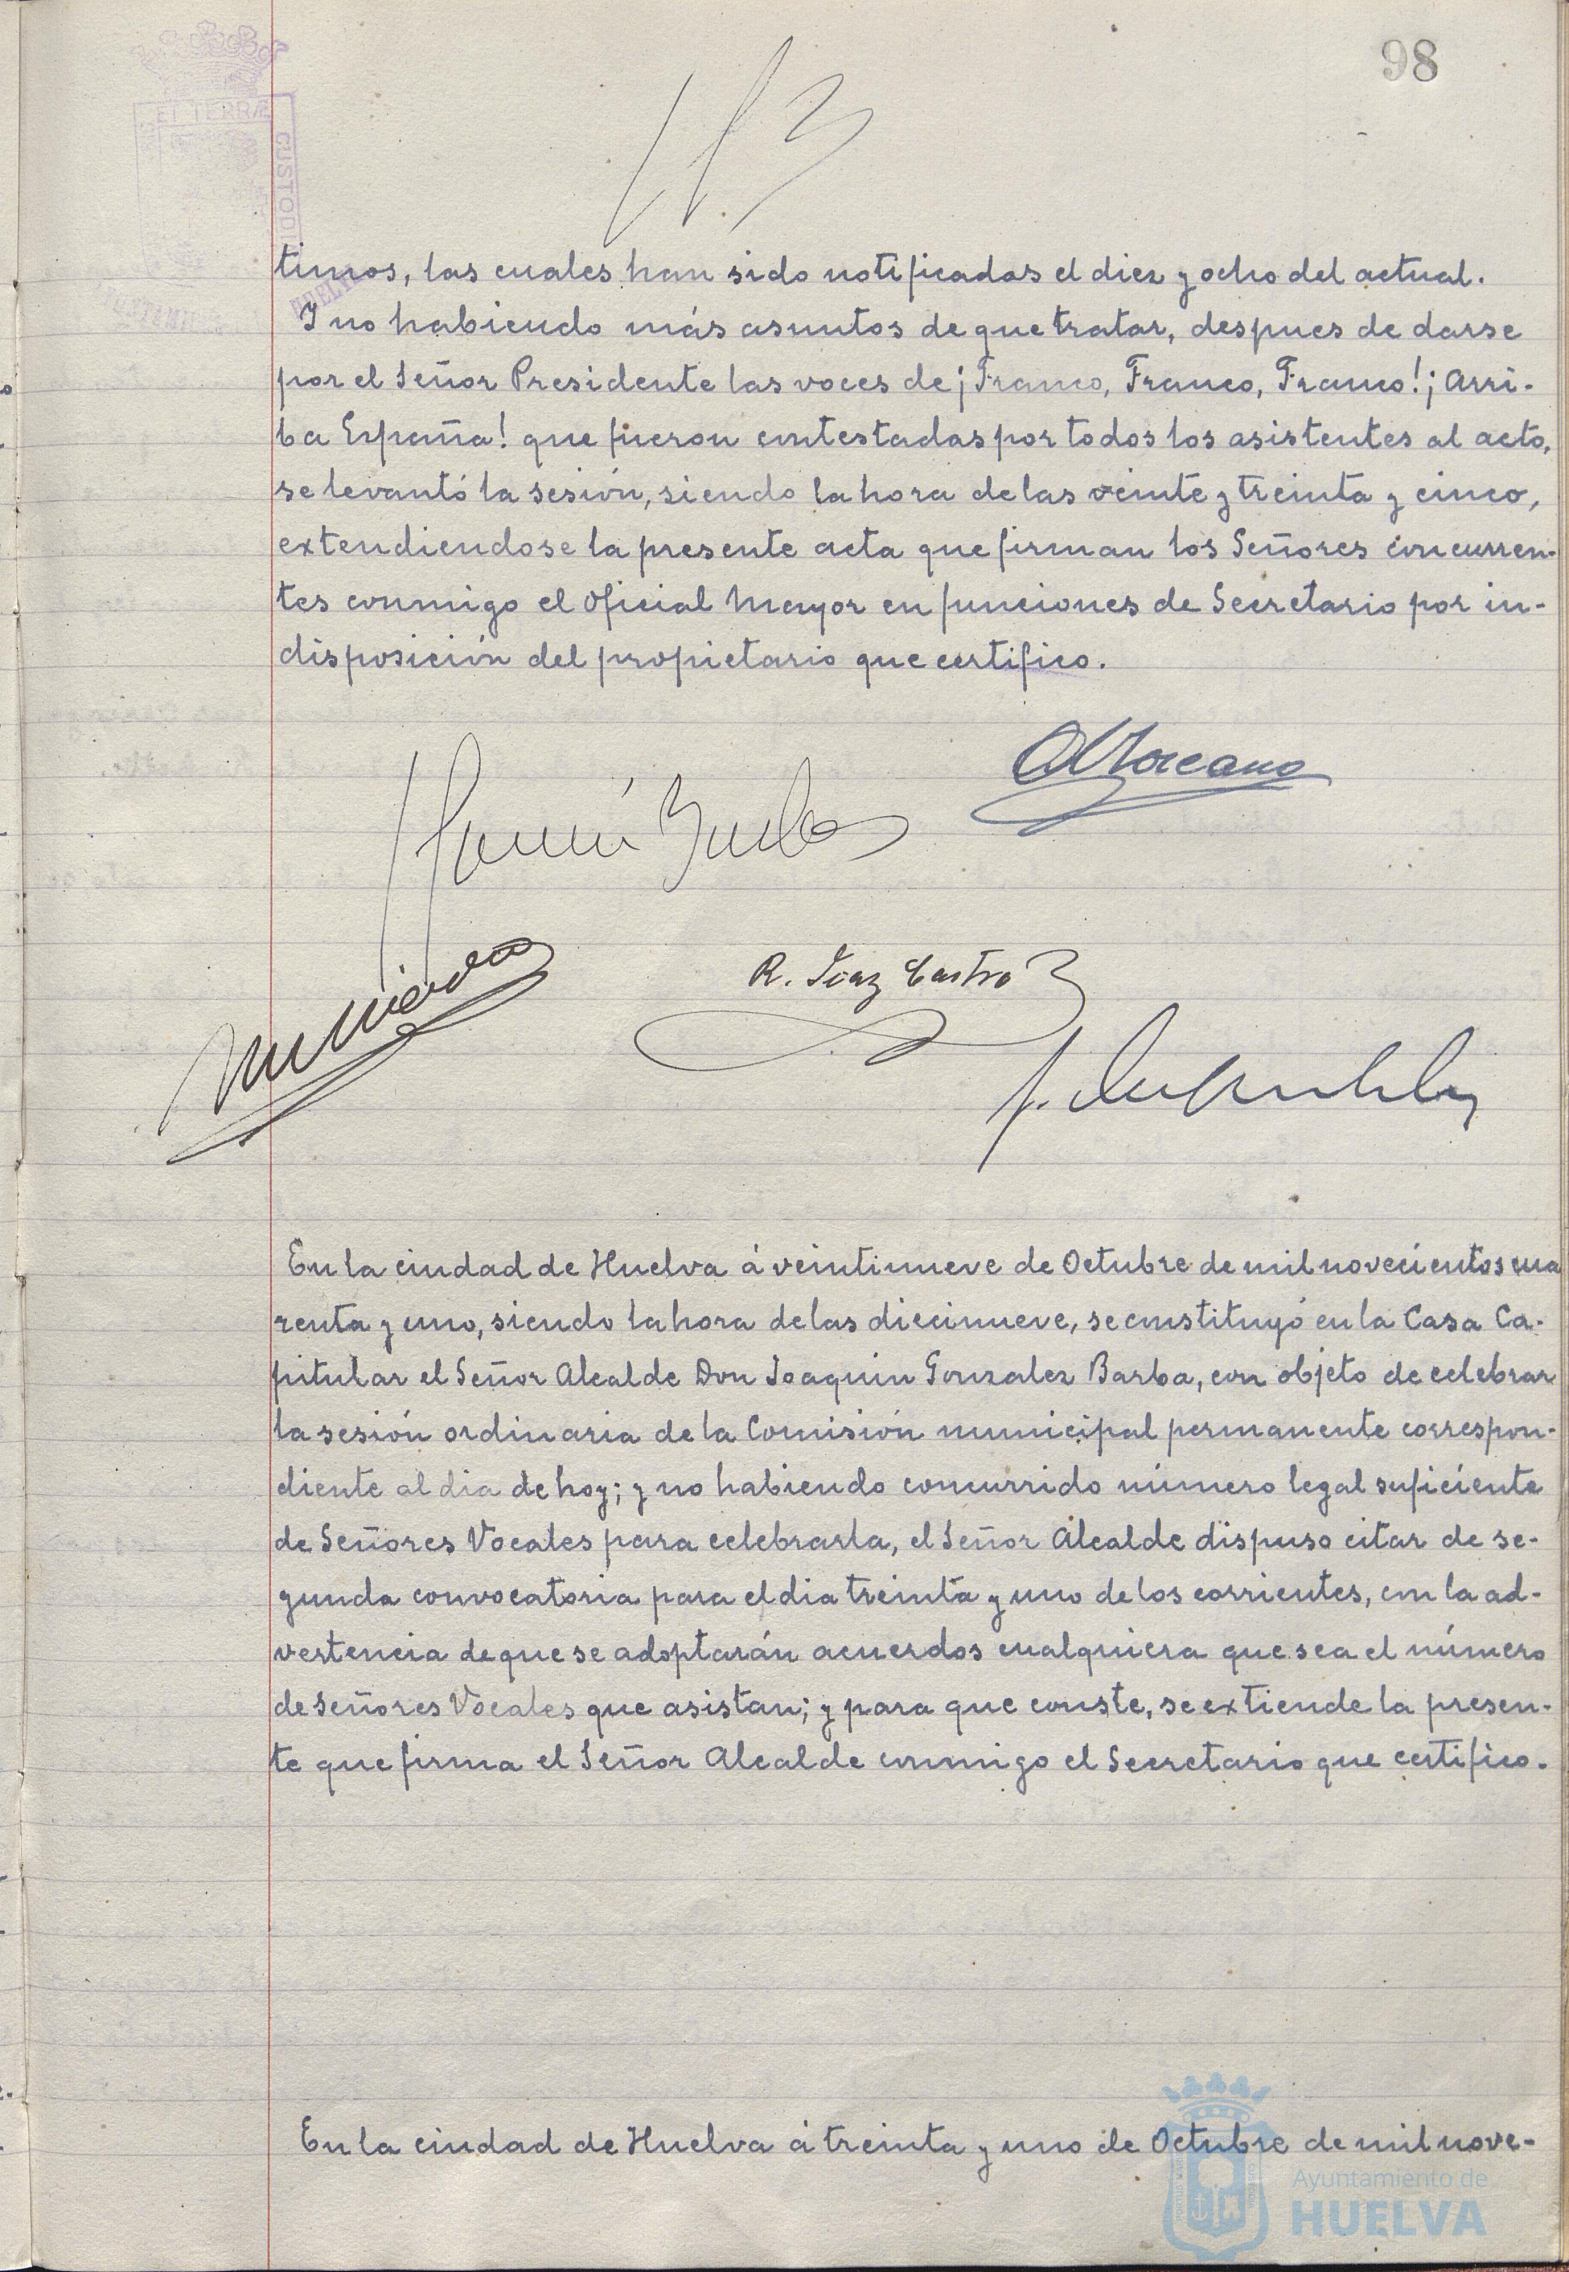 98
timos, las cuales han sido notificadas el diez y ocho del actual.
Y no habiendo más asuntos de que tratar, despues de darse
por el Señor Presidente las voces de ¡Franco, Franco, Franco! ¡Arri-
ba España! que fueron contestadas por todos los asistentes al acto,
se levantó la sesión, siendo la hora de las veinte y treinta y cinco,
extendiendose la presente acta que firman los Señores concurren-
tes conmigo el Oficial Mayor en funciones de Secretario por in-
disposición del propietario que certifico.
R. Diaz Castro
En la ciudad de Huelva á veintinueve de Octubre de mil novecientos cua
renta y uno, siendo la hora de las diecinueve, se constituyó en la Casa Ca-
pitular el Señor Alcalde Don Joaquin Gonzalez Barba, con objeto de celebrar
la sesión ordinaria de la Comisión municipal permanente correspon-
diente al dia de hoy; y no habiendo concurrido número legal suficiente
de Señores Vocales para celebrarla, el Señor Alcalde dispuso citar de se-
gunda convocatoria para el dia treinta y uno de los corrientes, con la ad-
vertencia de que se adoptarán acuerdos cualquiera que sea el número
de Señores Vocales que asistan; y para que conste, se extiende la presen-
te que firma el Señor Alcalde conmigo el Secretario que certifico.
En la ciudad de Huelva á treinta y uno de Octubre de mil nove-
Ayuntamiento de
HUELVA